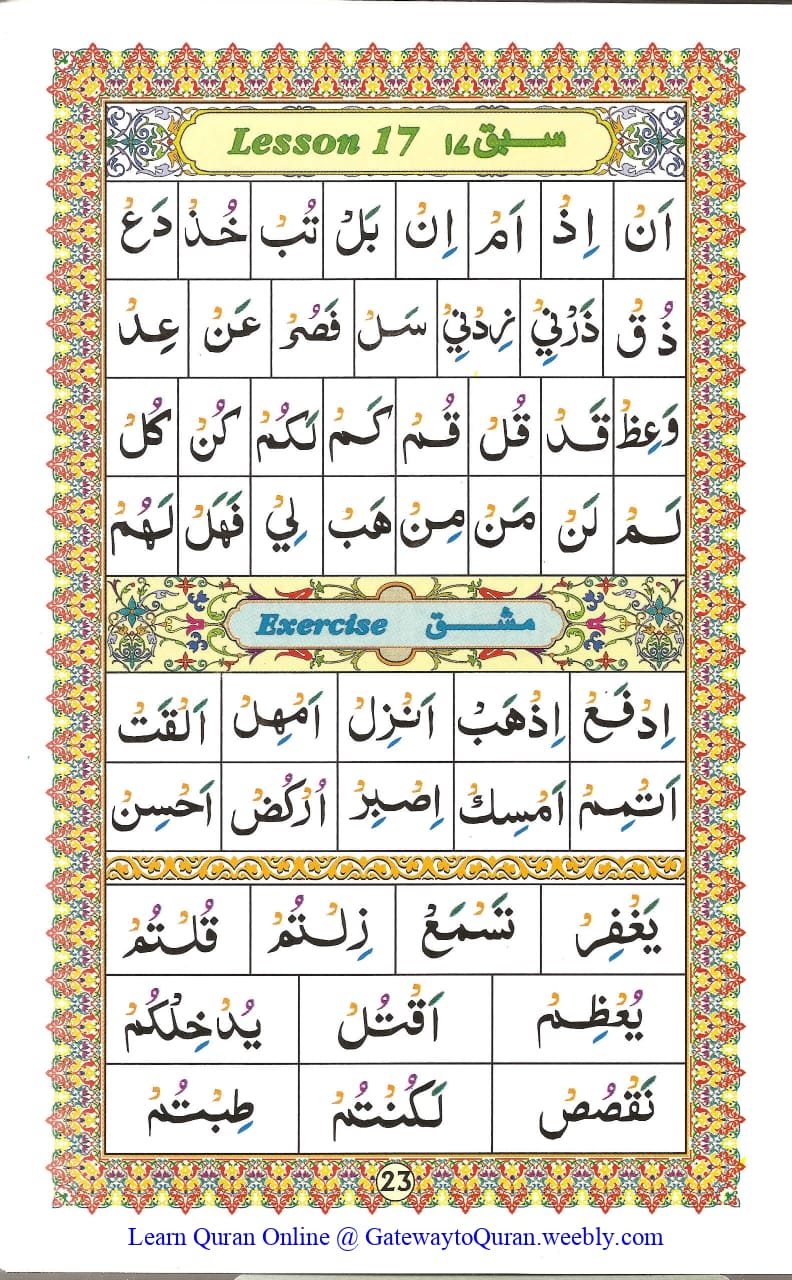 Lesson 17 سبق ١٧
اَنْ اِذْ اَمْ اِنْ بَلْ تُبْ خُذْ دَعْ
ذُقْ ذَرْنِيْ زِدْنِيْ سَلْ فَصُرْ عَنْ عِدْ
وَعِظْ قَدْ قُلْ قُمْ كَمْ لَكُمْ كُنْ كُلْ
لَمْ لَنْ مَنْ مِنْ هَبْ لِيْ فَهَلْ لَهُمْ
Exercise مشق
اِدْفَعْ اِذْهَبْ اَنْزِلْ اَمْهِلْ اَلْقَتْ
اَتْمِمْ اَمْسِكْ اِصْبِرْ اُرْكُضْ اَحْسِنْ
يَغْفِرْ تَسْمَعْ زِلْتُمْ قُلْتُمْ
يُعْظِمْ اَقْتُلْ يُدْخِلْكُمْ
نَقْصُصْ لَكُنْتُمْ طِبْتُمْ
23
Learn Quran Online @ GatewaytoQuran.weebly.com